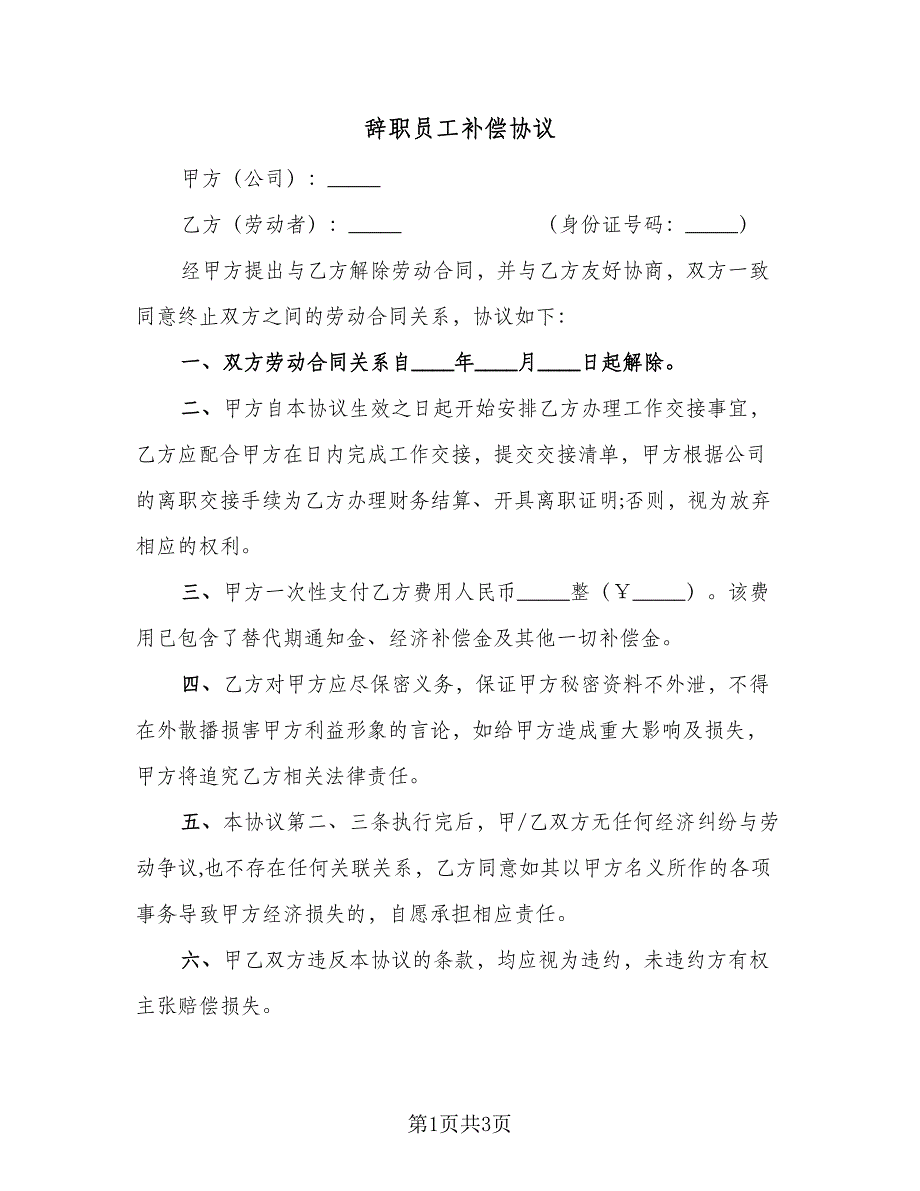 辞职员工补偿协议
甲方（公司）：_____
乙方（劳动者）：_____ （身份证号码：_____）
经甲方提出与乙方解除劳动合同，并与乙方友好协商，双方一致
同意终止双方之间的劳动合同关系，协议如下：
一、双方劳动合同关系自____年____月____日起解除。
二、甲方自本协议生效之日起开始安排乙方办理工作交接事宜，
乙方应配合甲方在日内完成工作交接，提交交接清单，甲方根据公司
的离职交接手续为乙方办理财务结算、开具离职证明;否则，视为放弃
相应的权利。
三、甲方一次性支付乙方费用人民币_____整（￥_____）。该费
用已包含了替代期通知金、经济补偿金及其他一切补偿金。
四、乙方对甲方应尽保密义务，保证甲方秘密资料不外泄，不得
在外散播损害甲方利益形象的言论，如给甲方造成重大影响及损失，
甲方将追究乙方相关法律责任。
五、本协议第二、三条执行完后，甲/乙双方无任何经济纠纷与劳
动争议,也不存在任何关联关系，乙方同意如其以甲方名义所作的各项
事务导致甲方经济损失的，自愿承担相应责任。
六、甲乙双方违反本协议的条款，均应视为违约，未违约方有权
主张赔偿损失。
第1页共3页